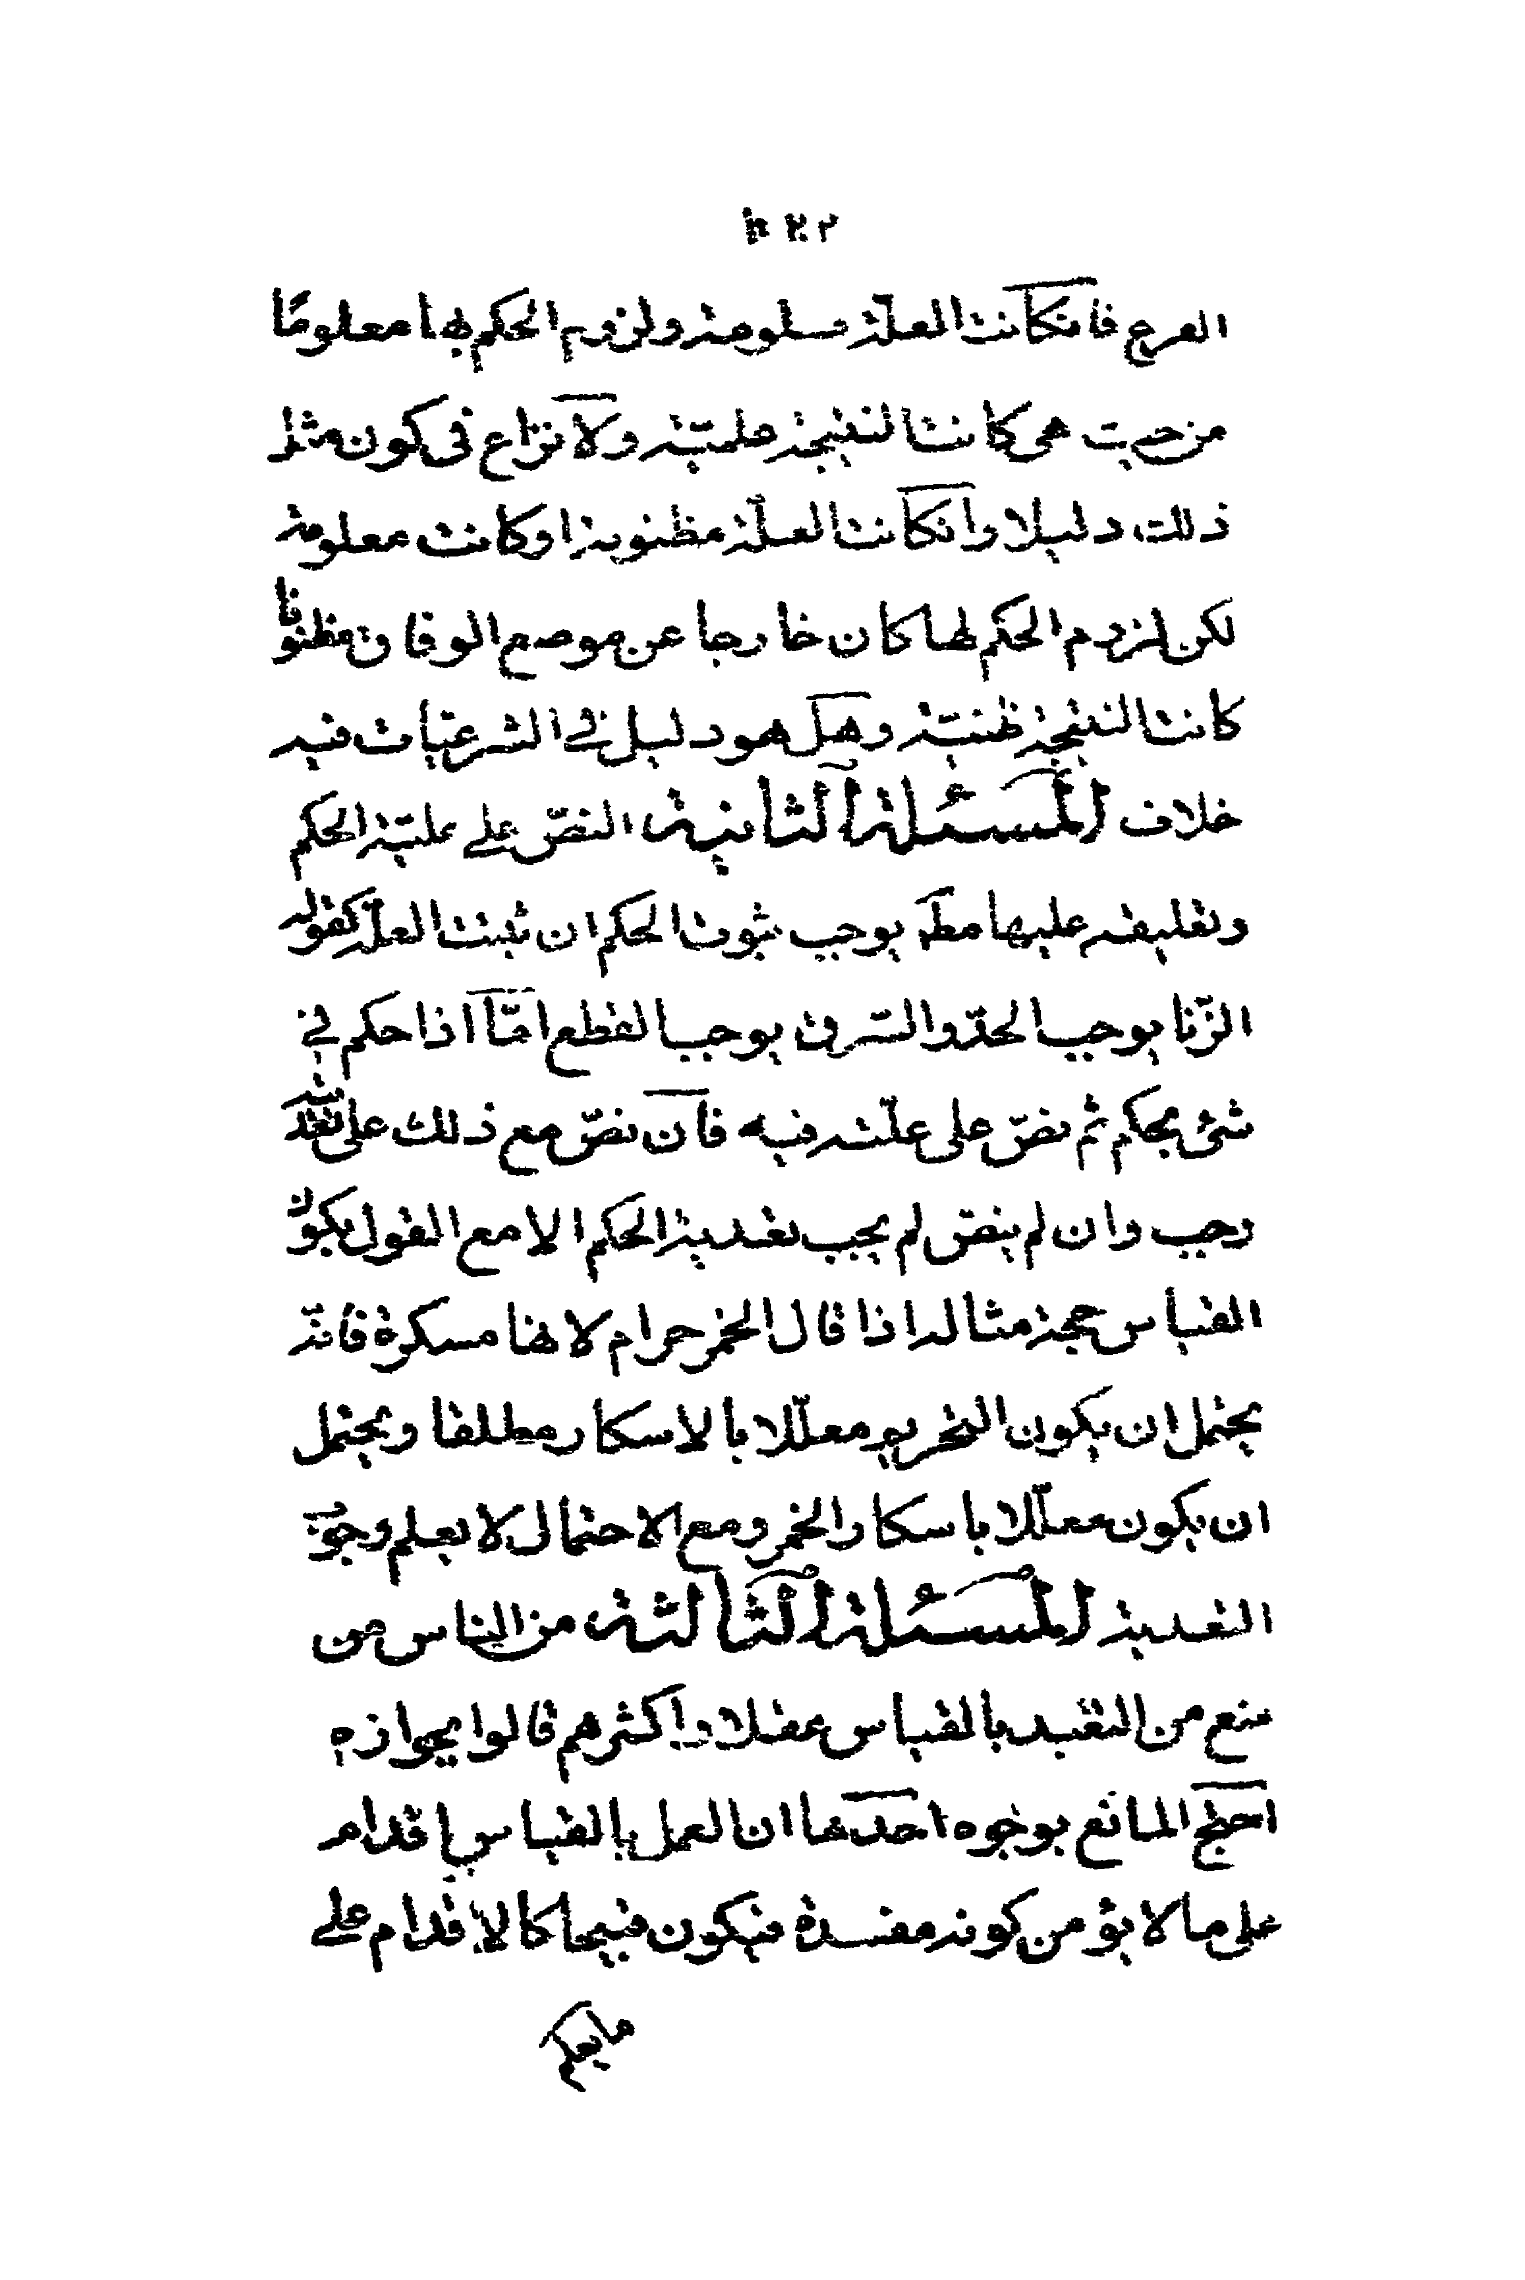 الفرع فانكانت العلّة معلومة ولزوم الحكم لها معلومًا
من حيث هى كانت النتيجة علميّة ولا نزاع فى كون مثل
ذلك دليلا وانكانت العلّة مظنونة او كانت معلومة
لكن لزوم الحكم لها كان خارجا عن موضع الوفاق مظنونا
كانت النتيجة ظنيّة وهل هو دليل في الشرعيّات فيه
خلاف المسئلة الثانية النصّ على عليّة الحكم
وتعليقه عليها مط يوجب ثبوت الحكم ان ثبتت العلّة كقوله
الزّنا يوجب الحدّ والسّرقة يوجب القطع امّا اذا حكم في
شئ بحكم ثم نصّ على علّته فيه فان نصّ مع ذلك على تعديته
وجب وان لم ينصّ لم يجب تعدية الحكم الا مع القول بكون
القياس حجة مثاله اذا قال الخمر حرام لانها مسكرة فانّه
يحتمل ان يكون التحريم معلّلا بالاسكار مطلقا ويحتمل
ان يكون معلّلا باسكار الخمر ومع الاحتمال لا يعلم وجوب
التعدية المسئلة الثالثة من الناس من
منع من التعبد بالقياس عقلا واكثرهم قالوا بجوازه
احتج المانع بوجوه احدها ان العمل بالقياس اقدام
على ما لا يؤمن كونه مفسدة فيكون قبيحا كالاقدام على
ما يعلم